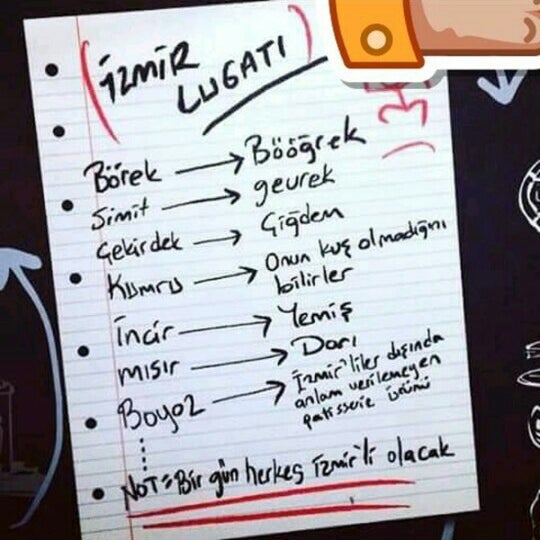 (İZMİR
LUGATI)
Börek → Bööğrek
Simit → gevrek
Çekirdek → Çiğdem
Kumru → Onun kuş olmadığını
bilirler
İncir → Yemiş
mısır → Darı
Boyoz → İzmir'liler dışında
anlam verilemeyen
patisserie ürünü
NOT = Bir gün herkes İzmir'li olacak